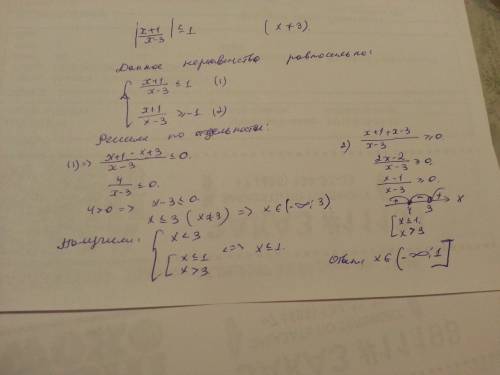 |x+1/x-3| ≤ 1 (x≠3).
Данное неравенство равносильно:
{ x+1/x-3 ≤ 1 (1)
x+1/x-3 ≥ -1 (2)
Решим по отдельности:
(1) => x+1-x+3/x-3 ≤ 0.
4/x-3 ≤ 0.
4>0 => x-3 ≤ 0.
x ≤ 3 (x≠3) => x∈(-∞; 3)
2) x+1+x-3/x-3 ≥ 0.
2x-2/x-3 ≥ 0.
x-1/x-3 ≥ 0.
+ - + x
1 3
[ x≤1,
x>3
Получим: { x<3
[ x≤1 <=> x≤1.
x>3
Ответ: x∈(-∞; 1]